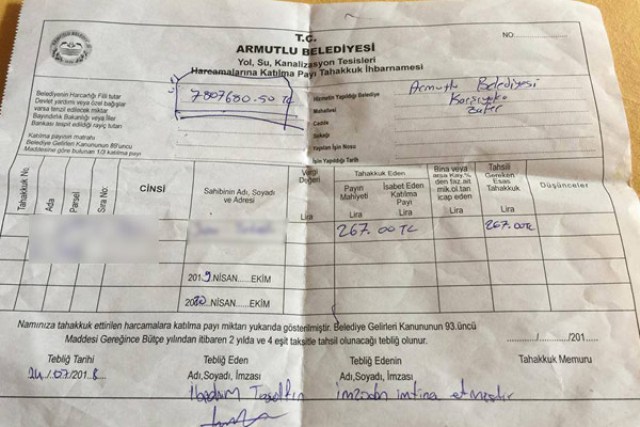 T.C.
NO:
ARMUTLU BELEDİYESİ
Yol, Su, Kanalizasyon Tesisleri
Harcamalarına Katılma Payı Tahakkuk İhbarnamesi
Belediyenin Harcadığı Fiili tutar
Devlet yardımı veya özel bağışlar
varsa tenzil edilecek miktar
Bayındırlık Bakanlığı veya İller
Bankası tespit edildiği rayiç tutarı
Katılma payının matrahı
Belediye Gelirleri Kanununun 89'uncu
Maddesine göre bulunan 1/3 katılma payı
7807680.50 TL
Hizmetin Yapıldığı Belediye Armutlu Belediyesi
Mahallesi Karşıyaka
Cadde Zafer
Sokağı
Yapılan İşin Nosu
İşin Yapıldığı Tarih
Tahakkuk No:
Ada
Parsel
Sıra No:
CİNSİ
Sahibinin Adı, Soyadı
ve Adresi
Vergi
Değeri
Lira
Tahakkuk Eden
Payın
Mahiyeti
Lira
İsabet Eden
Katılma
Payı
Lira
Bina veya
arsa Kay.%
den faz.ait
mik.ol.tan
icap eden
Tahsili
Gereken
Esas
Tahakkuk
Lira
Düşünceler
267.00 TL
267.00TL
2019.NİSAN......EKİM
2020.NİSAN......EKİM
Namınıza tahakkuk ettirilen harcamalara katılma payı miktarı yukarıda gösterilmiştir. Belediye Gelirleri Kanununun 93.üncü
Maddesi Gereğince Bütçe yılından itibaren 2 yılda ve 4 eşit taksitle tahsil olunacağı tebliğ olunur.
........./........./201.....
Tebliğ Tarihi
24/07/2018
Tebliğ Eden
Adı,Soyadı, İmzası
Tebliğ Edenin
Adı,Soyadı, İmzası
İmzadan imtina etmiştir
Tahakkuk Memuru